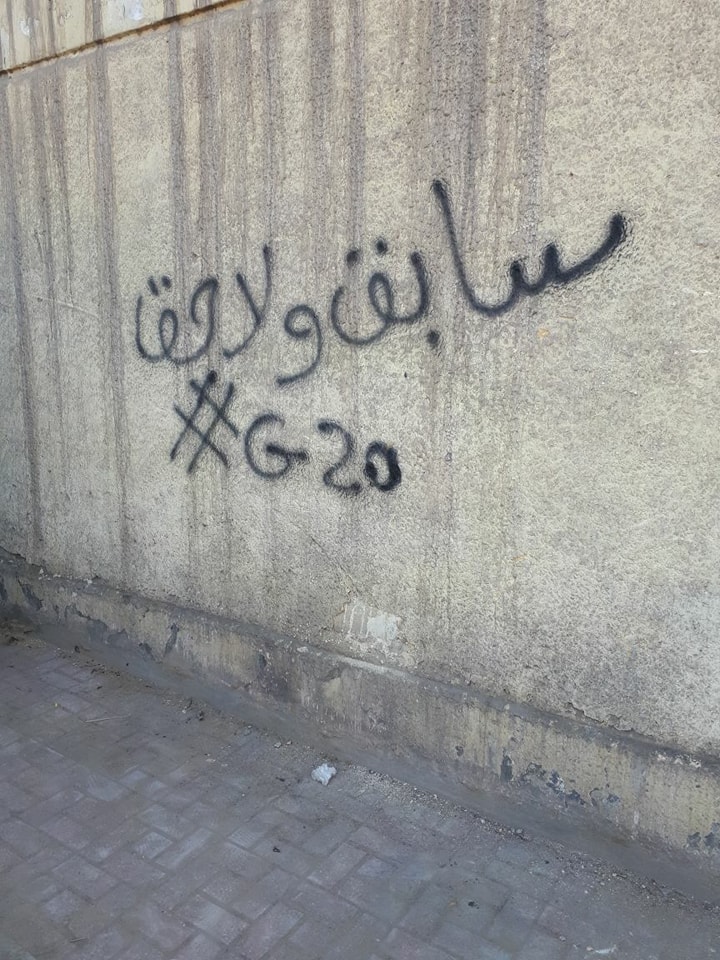 سابق ولاحق
#G20